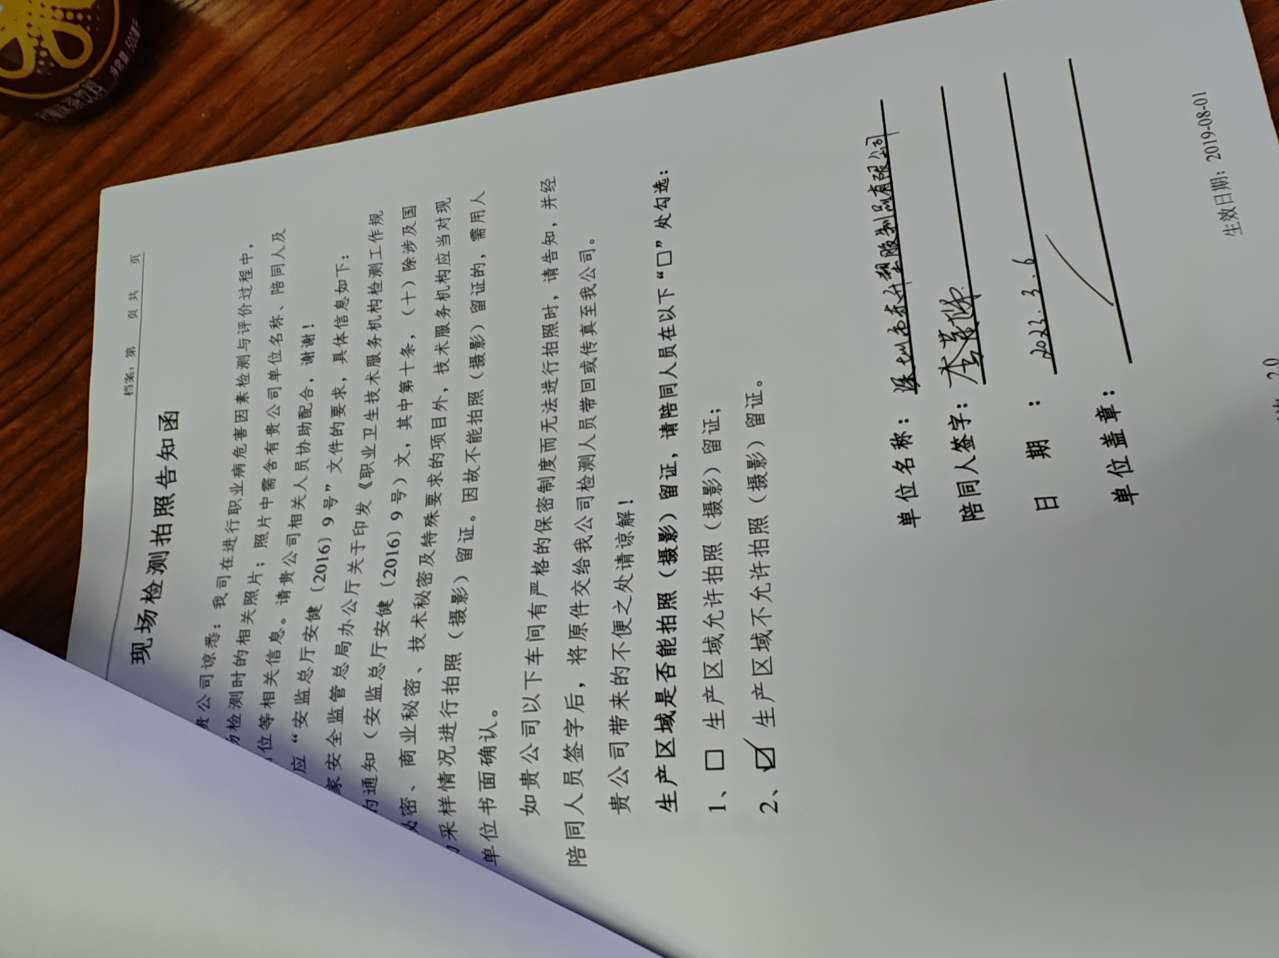 档案：第 页 共 页
现场检测拍照告知函
贵公司谅悉：我司在进行职业病危害因素检测与评价过程中，
场检测时的相关照片；照片中需含有贵公司单位名称、陪同人及
位等相关信息。请贵公司相关人员协助配合，谢谢！
应“安监总厅安健〔2016〕9号”文件的要求，具体信息如下：
家安全监管总局办公厅关于印发《职业卫生技术服务机构检测工作规
的通知（安监总厅安健〔2016〕9号）文，其中第十条，（十）除涉及国
秘密、商业秘密、技术秘密及特殊要求的项目外，技术服务机构应当对现
采样情况进行拍照（摄影）留证。因故不能拍照（摄影）留证的，需用人
单位书面确认。
如贵公司以下车间有严格的保密制度而无法进行拍照时，请告知，并经
陪同人员签字后，将原件交给我公司检测人员带回或传真至我公司。
贵公司带来的不便之处请谅解！
生产区域是否能拍照（摄影）留证，请陪同人员在以下“□”处勾选：
1、□ 生产区域允许拍照（摄影）留证；
2、☑ 生产区域不允许拍照（摄影）留证。
单位名称：深圳市永升翠胶制品有限公司
陪同人签字：李
日 期：2022.3.6
单位盖章：
生效日期：2019-08-01
2.0